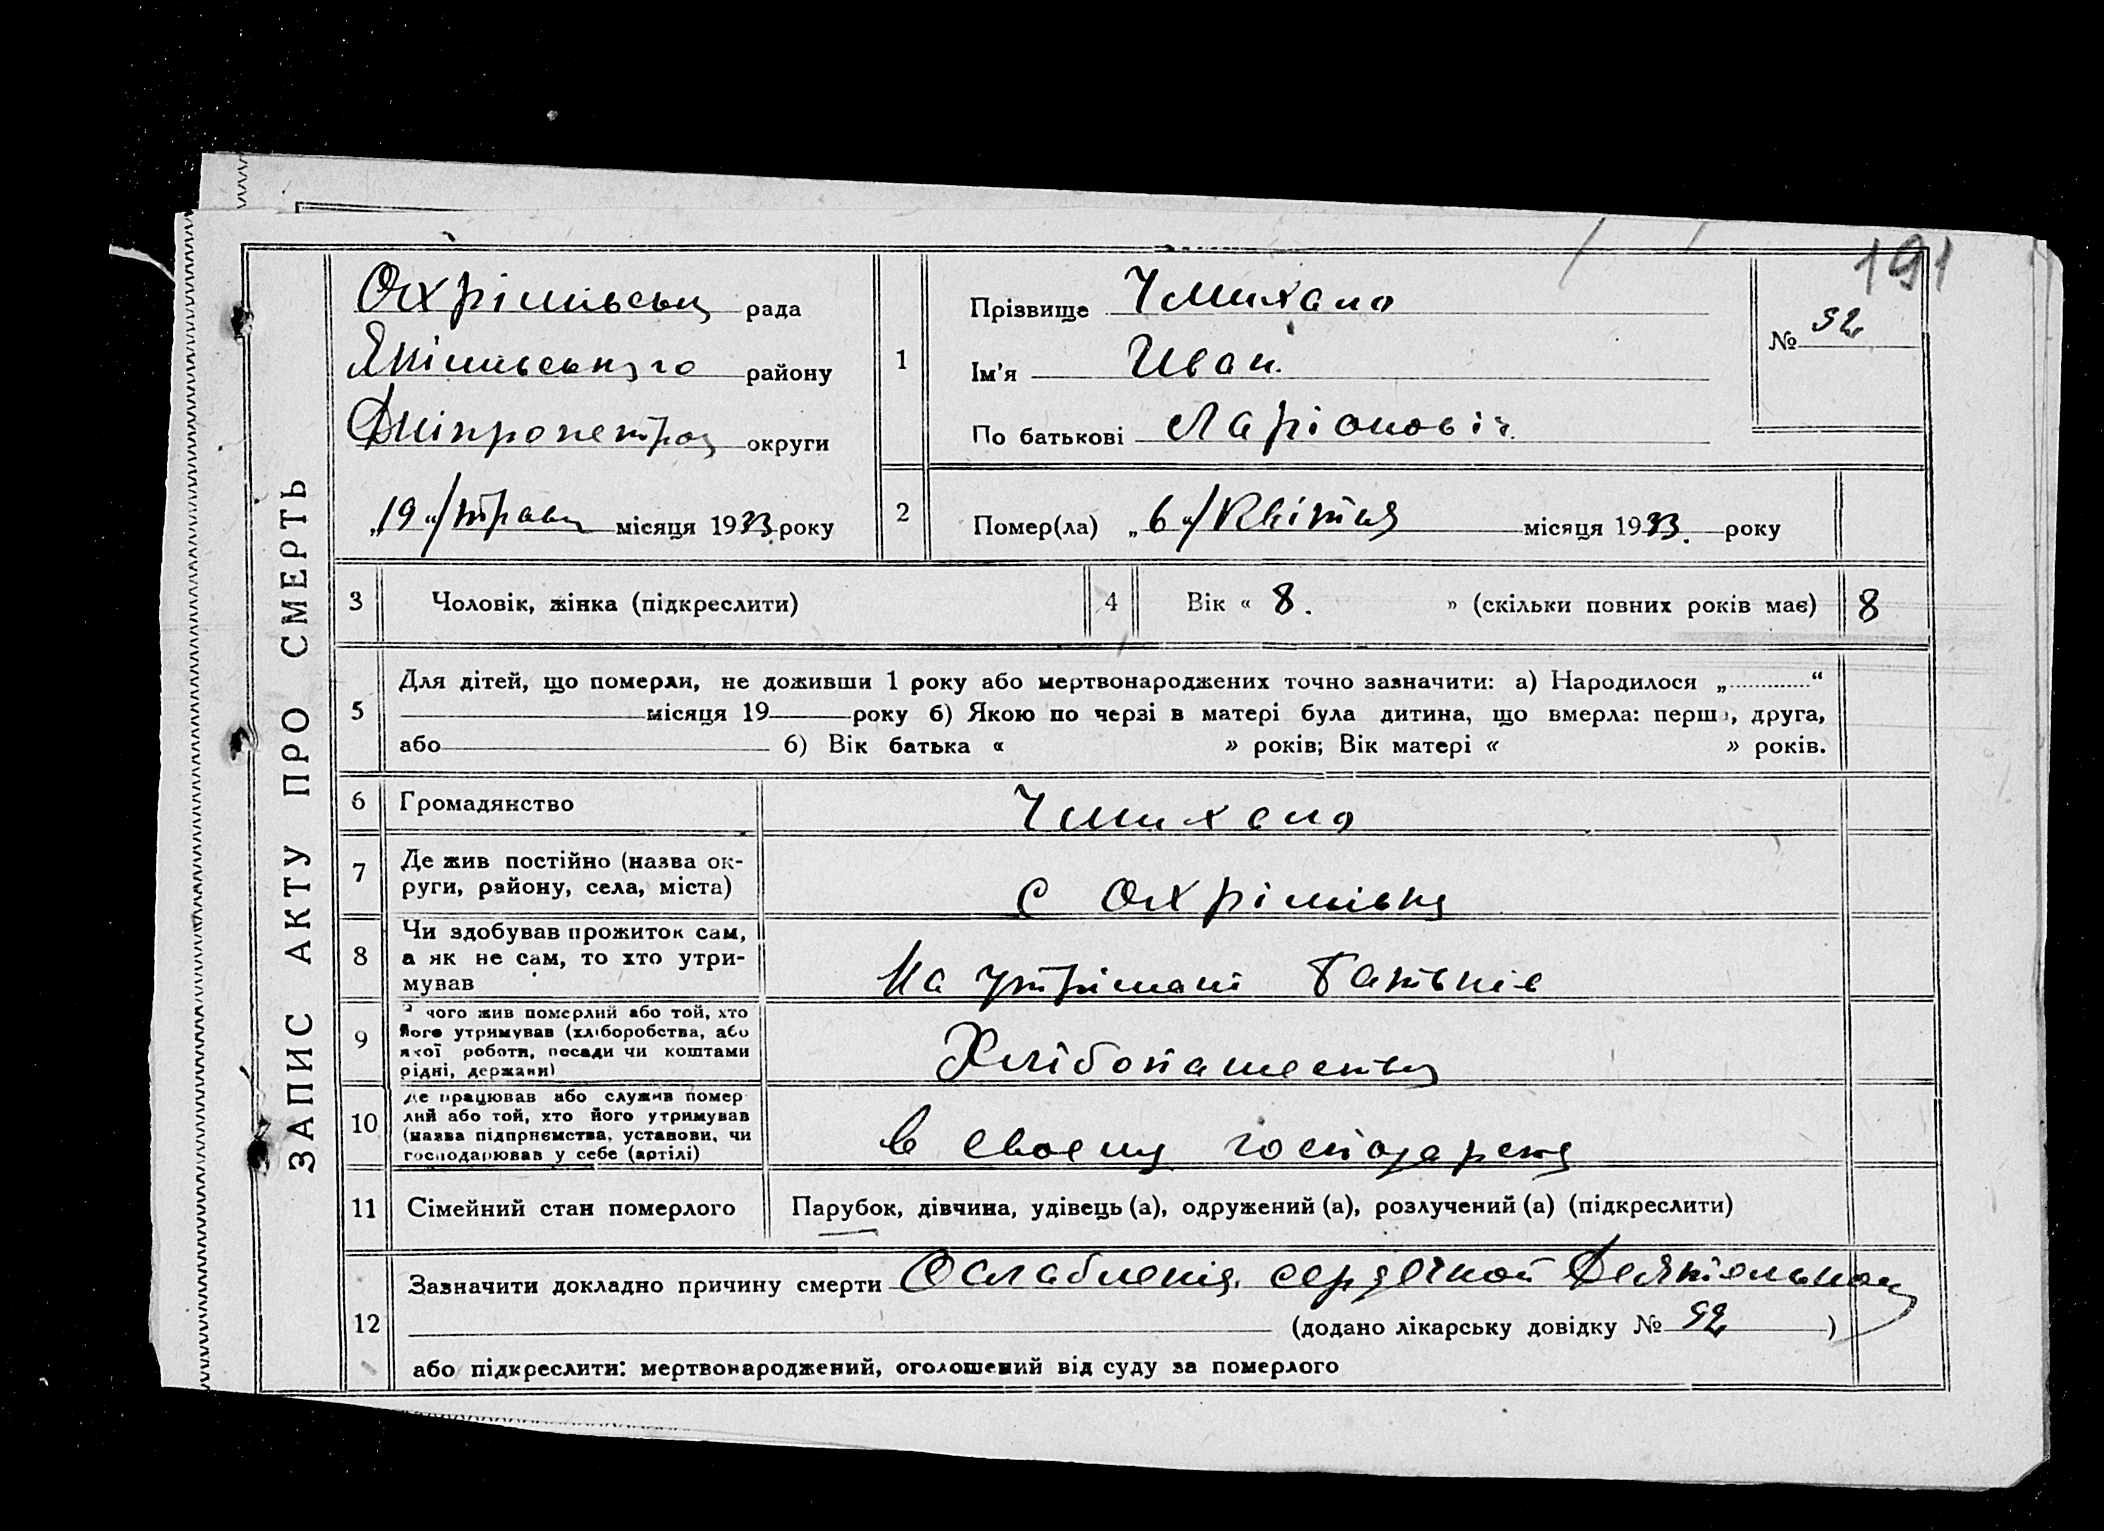 191
ЗАПИС АКТУ ПРО СМЕРТЬ
Охрімівська рада
Якімівського району
Дніпропетров округи
„19“ травня місяця 1933 року
1
Прізвище Чмихало
Ім'я Иван.
По батькові Ларіоновіч.
№ 92
2
Помер(ла) „6“ Квітня місяця 1933. року
3 Чоловік, жінка (підкреслити)
4 Вік « 8. » (скільки повних років має) 8
5
Для дітей, що померли, не доживши 1 року або мертвонароджених точно зазначити: а) Народилося „ “
місяця 19 року б) Якою по черзі в матері була дитина, що вмерла: перша, друга,
або б) Вік батька « » років; Вік матері « » років.
6 Громадянство Чмихало
7 Де жив постійно (назва ок-
руги, району, села, міста) с Охрімівка
8 Чи здобував прожиток сам,
а як не сам, то хто утри-
мував На утрімані батьків
9 З чого жив померлий або той, хто
його утримував (хліборобства, або
якої роботи, посади чи коштами
рідні, держави) Хлібопашество
10 Де працював або служив помер
лий або той, хто його утримував
(назва підприємства, установи, чи
господарював у себе (артілі) в своему господарстві
11 Сімейний стан померлого Парубок, дівчина, удівець (а), одружений (а), розлучений (а) (підкреслити)
12
Зазначити докладно причину смерти Ослабленія сердечной Деятельност
(додано лікарську довідку № 92 )
або підкреслити: мертвонароджений, оголошений від суду за померлого